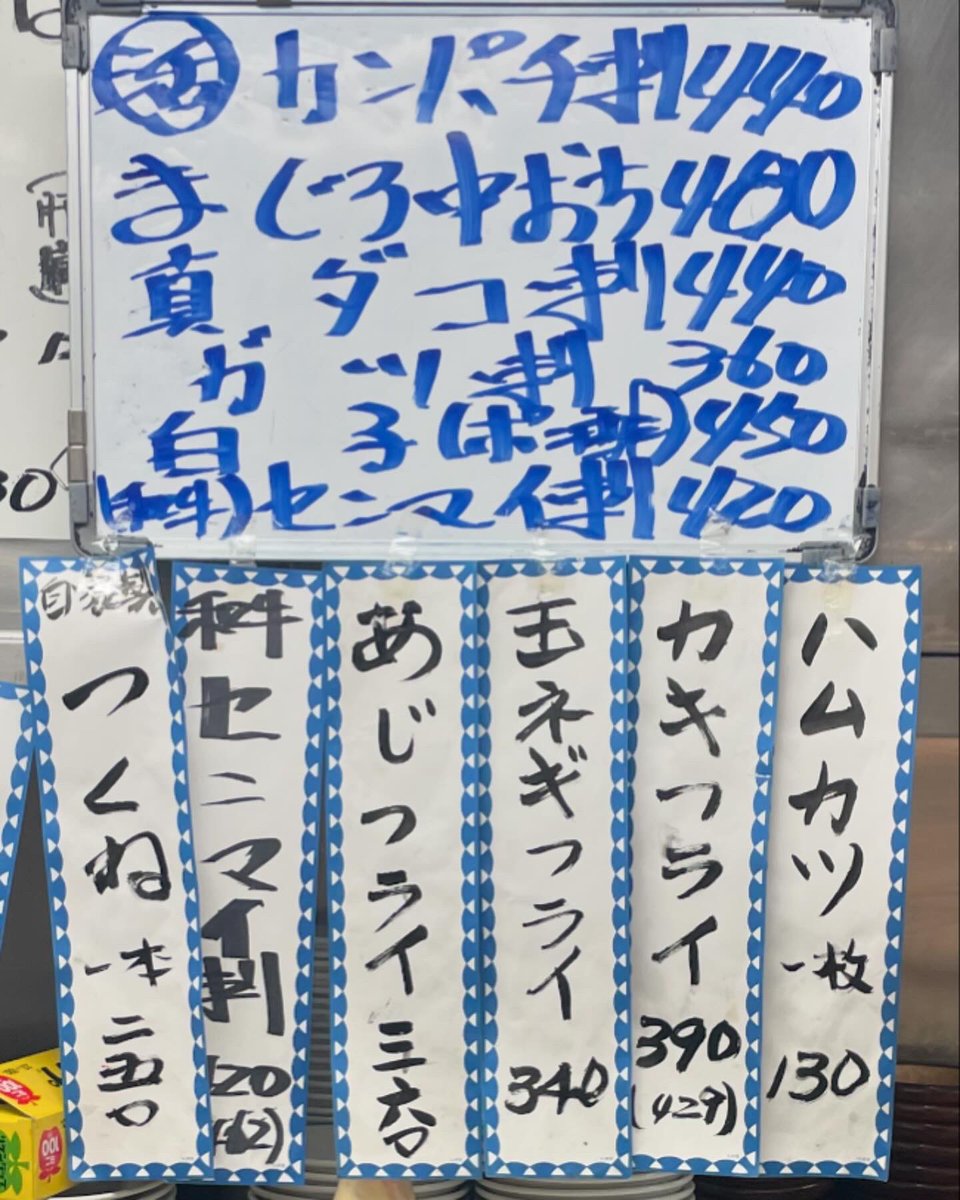 活 カンパチ刺 440
まぐろ中おち 480
真ダコ刺 440
ガツ刺 360
白子(ポン酢) 450
(和牛)センマイ刺 420
ハムカツ 一枚 130
カキフライ 390
(429)
玉ネギフライ 340
あじフライ 三六〇
和牛センマイ刺 420
(462)
自家製
つくね 一本 二五〇